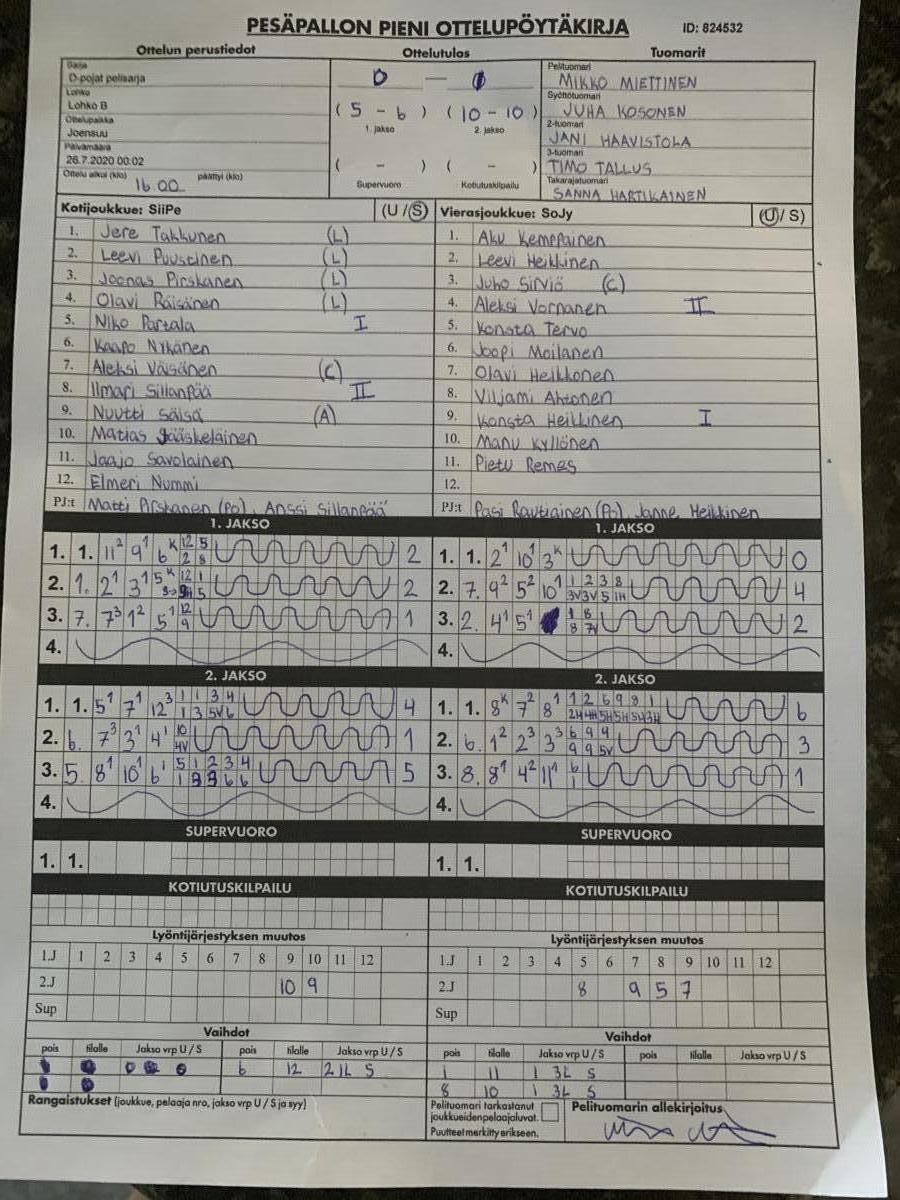 PESÄPALLON PIENI OTTELUPÖYTÄKIRJA ID: 824532
Ottelun perustiedot Ottelutulos Tuomarit
Sarja
D-pojat pelisarja
Lohko
Lohko B
Ottelupaikka
Joensuu
Päivämäärä
26.7.2020 00:02
Ottelu alkoi (klo) 16.00 päättyi (klo)
0 –
( 5 - 6 ) ( 10 - 10 )
1. jakso 2. jakso
( - ) ( - )
Supervuoro Kotiutuskilpailu
Pelituomari
MIKKO MIETTINEN
Syöttötuomari
JUHA KOSONEN
2-tuomari
JANI HAAVISTOLA
3-tuomari
TIMO TALLUS
Takarajatuomari
SANNA HARTIKAINEN
Kotijoukkue: SiiPe (U / S)
1. Jere Takkunen (L)
2. Leevi Puustinen (L)
3. Joonas Pirskanen (L)
4. Olavi Räisänen (L)
5. Niko Partala I
6. Kaapo Nykänen
7. Aleksi Väisänen (C)
8. Ilmari Sillanpää II
9. Nuutti Säisä (A)
10. Matias Jääskeläinen
11. Jaajo Savolainen
12. Elmeri Nummi
PJ:t Matti Pirskanen (Po), Anssi Sillanpää
Vierasjoukkue: SoJy (U / S)
1. Aku Kemppainen
2. Leevi Heikkinen
3. Juho Sirviö (C)
4. Aleksi Vornanen II
5. Konsta Tervo
6. Joopi Moilanen
7. Olavi Heikkonen
8. Viljami Ahtonen
9. Konsta Heikkinen I
10. Manu Kyllönen
11. Pietu Remes
12.
PJ:t Pasi Rautiainen (Po), Janne Heikkinen
1. JAKSO
1. 1. 11² 9¹ 6ᴷ 12 5 2
2 8
2. 1. 2¹ 3¹ 5ᴷ 12 1 2
3. 7. 7³ 1² 5¹ 12 1
9
4.
1. JAKSO
1. 1. 2¹ 10¹ 3ᴷ 0
2. 7. 9² 5² 10¹ 1 2 3 8 4
3V 3V 5 1H
3. 2. 4¹ 5¹ 1 8 2
8 7V
4.
2. JAKSO
1. 1. 5¹ 7¹ 12³ 1 1 3 4 4
1 3 5V 6
2. 6. 7³ 3¹ 4¹ 10 1
4V
3. 5. 8¹ 10¹ 6¹ 5 1 2 3 4 5
1 3 3 6 6
4.
2. JAKSO
1. 1. 8ᴷ 7² 8¹ 1 2 6 9 8 1 6
2H 4H 5H 5H 5H 3H
2. 6. 1² 2³ 3³ 6 9 4 3
9 9 5V
3. 8. 8¹ 4² 11¹ 6 1
1
4.
SUPERVUORO
1. 1.
SUPERVUORO
1. 1.
KOTIUTUSKILPAILU
KOTIUTUSKILPAILU
Lyöntijärjestyksen muutos
1.J 1 2 3 4 5 6 7 8 9 10 11 12
2.J 10 9
Sup
Lyöntijärjestyksen muutos
1.J 1 2 3 4 5 6 7 8 9 10 11 12
2.J 8 9 5 7
Sup
Vaihdot
pois tilalle Jakso vrp U / S pois tilalle Jakso vrp U / S
6 12 2 1L S
Vaihdot
pois tilalle Jakso vrp U / S pois tilalle Jakso vrp U / S
1 11 1 3L S
8 10 1 3L S
Rangaistukset (joukkue, pelaaja nro, jakso vrp U / S ja syy)
Pelituomari tarkastanut
joukkueidenpelaajaluvat.
Puutteet merkitty erikseen.
Pelituomarin allekirjoitus